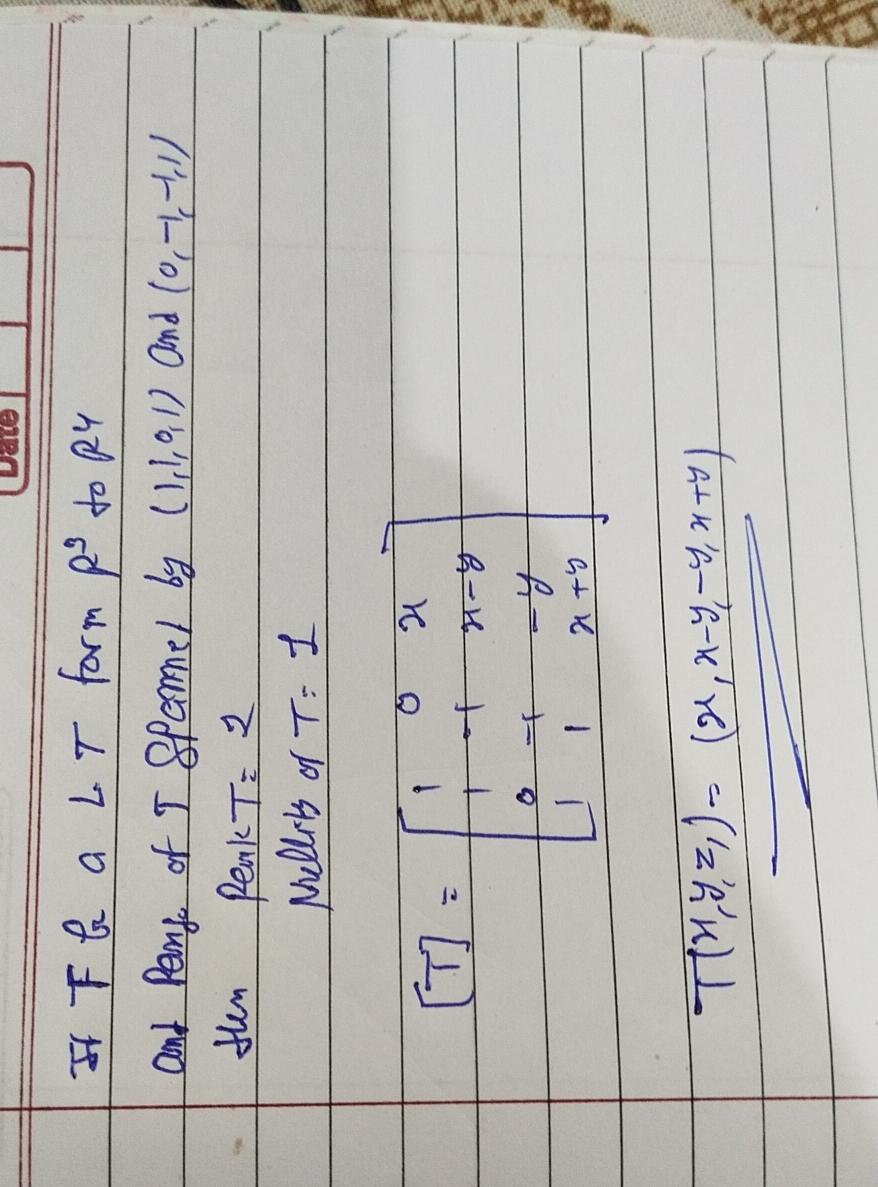 Date
If T be a LT form R³ to R4
and Rang of T Spannel by (1,1,0,1) and (0,-1,-1,1)
then Rank T = 2
Nullity of T = 1
[T] = [ 1 0 x
1 -1 x-y
0 -1 -y
1 1 x+y ]
T(x,y,z) = (x, x-y, -y, x+y)